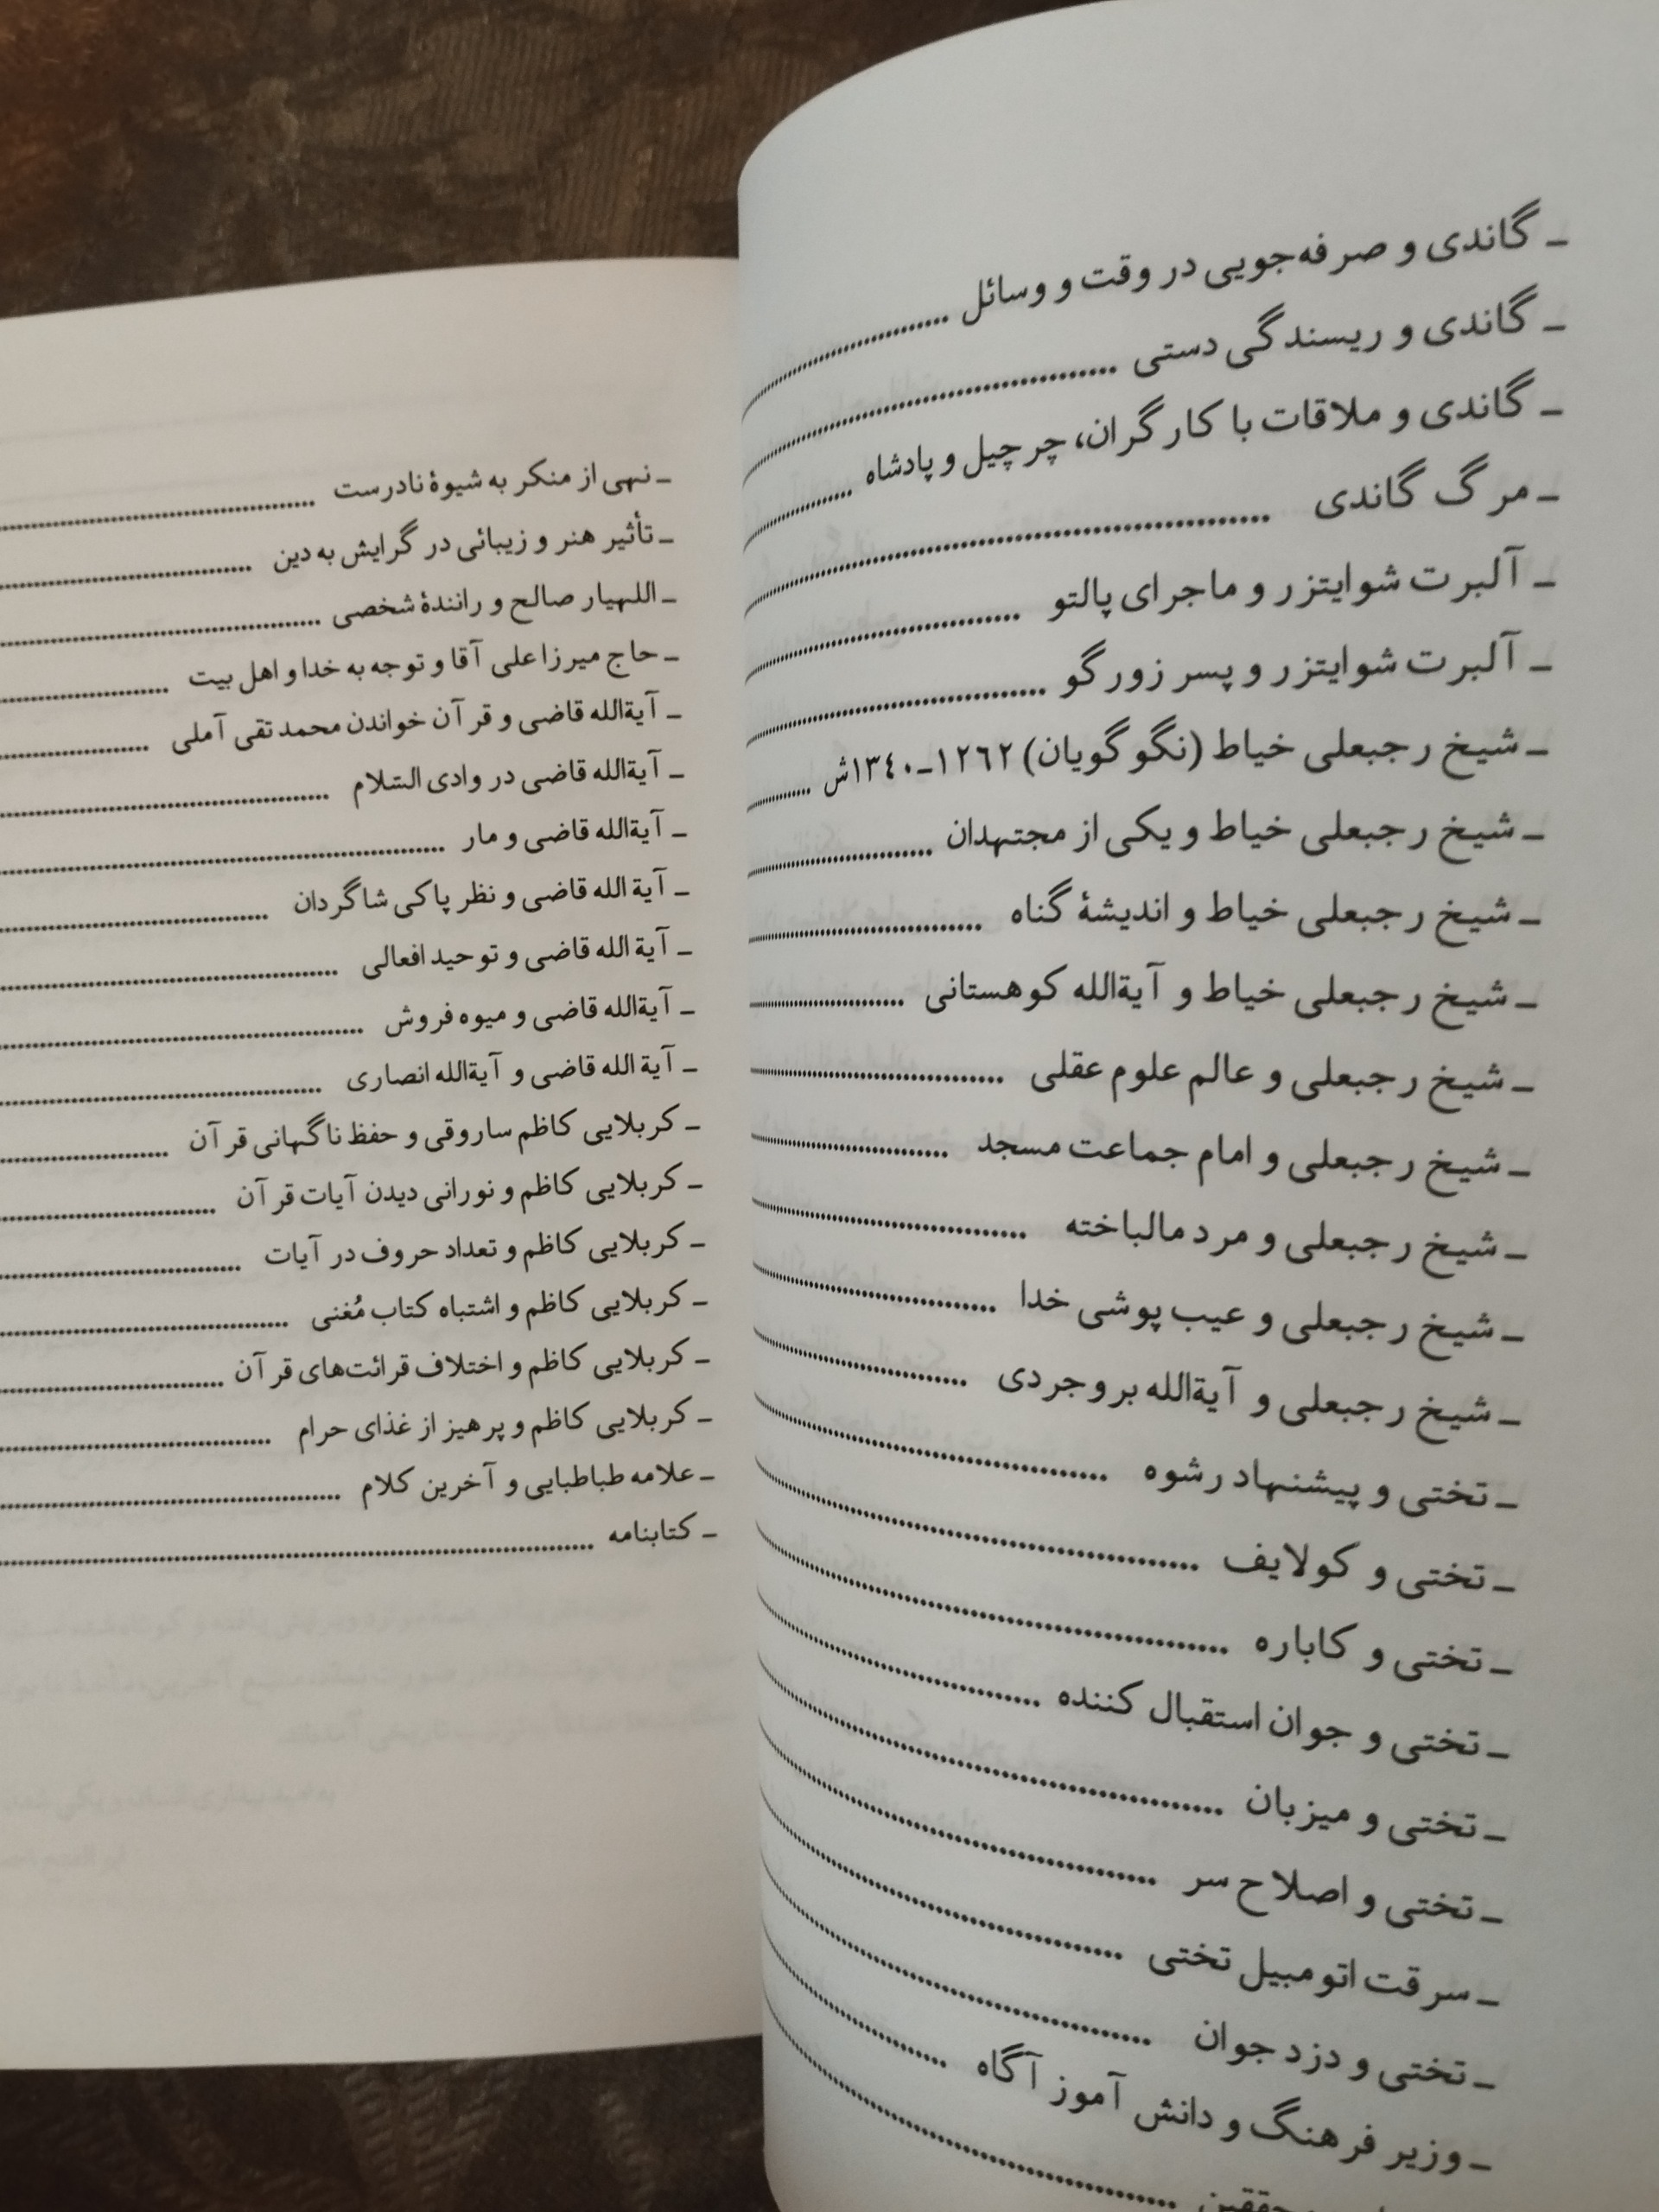 ـ گاندی و صرفه‌جویی در وقت و وسائل
ـ گاندی و ریسندگی دستی
ـ گاندی و ملاقات با کارگران، چرچیل و پادشاه
ـ مرگ گاندی
ـ آلبرت شوایتزر و ماجرای پالتو
ـ آلبرت شوایتزر و پسر زورگو
ـ شیخ رجبعلی خیاط (نگوگویان) ۱۲۶۲ـ۱۳۴۰ش
ـ شیخ رجبعلی خیاط و یکی از مجتهدان
ـ شیخ رجبعلی خیاط و اندیشۀ گناه
ـ شیخ رجبعلی خیاط و آیةالله کوهستانی
ـ شیخ رجبعلی و عالم علوم عقلی
ـ شیخ رجبعلی و امام جماعت مسجد
ـ شیخ رجبعلی و مرد مالباخته
ـ شیخ رجبعلی و عیب پوشی خدا
ـ شیخ رجبعلی و آیةالله بروجردی
ـ تختی و پیشنهاد رشوه
ـ تختی و کولایف
ـ تختی و کاباره
ـ تختی و جوان استقبال کننده
ـ تختی و میزبان
ـ تختی و اصلاح سر
ـ سرقت اتومبیل تختی
ـ تختی و دزد جوان
ـ وزیر فرهنگ و دانش آموز آگاه
ـ نهی از منکر به شیوۀ نادرست
ـ تأثیر هنر و زیبائی در گرایش به دین
ـ اللهیار صالح و رانندۀ شخصی
ـ حاج میرزا علی آقا و توجه به خدا و اهل بیت
ـ آیةالله قاضی و قرآن خواندن محمدتقی آملی
ـ آیةالله قاضی در وادی السّلام
ـ آیةالله قاضی و مار
ـ آیة الله قاضی و نظر پاکی شاگردان
ـ آیة الله قاضی و توحید افعالی
ـ آیةالله قاضی و میوه فروش
ـ آیة الله قاضی و آیةالله انصاری
ـ کربلایی کاظم ساروقی و حفظ ناگهانی قرآن
ـ کربلایی کاظم و نورانی دیدن آیات قرآن
ـ کربلایی کاظم و تعداد حروف در آیات
ـ کربلایی کاظم و اشتباه کتاب مُغنی
ـ کربلایی کاظم و اختلاف قرائت‌های قرآن
ـ کربلایی کاظم و پرهیز از غذای حرام
ـ علامه طباطبایی و آخرین کلام
ـ کتابنامه